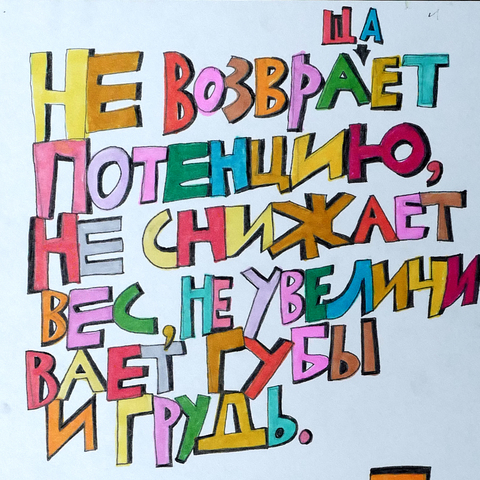 ЩА
НЕ ВОЗВРАЕТ
ПОТЕНЦИЮ,
НЕ СНИЖАЕТ
ВЕС, НЕ УВЕЛИЧИ
ВАЕТ ГУБЫ
И ГРУДЬ.